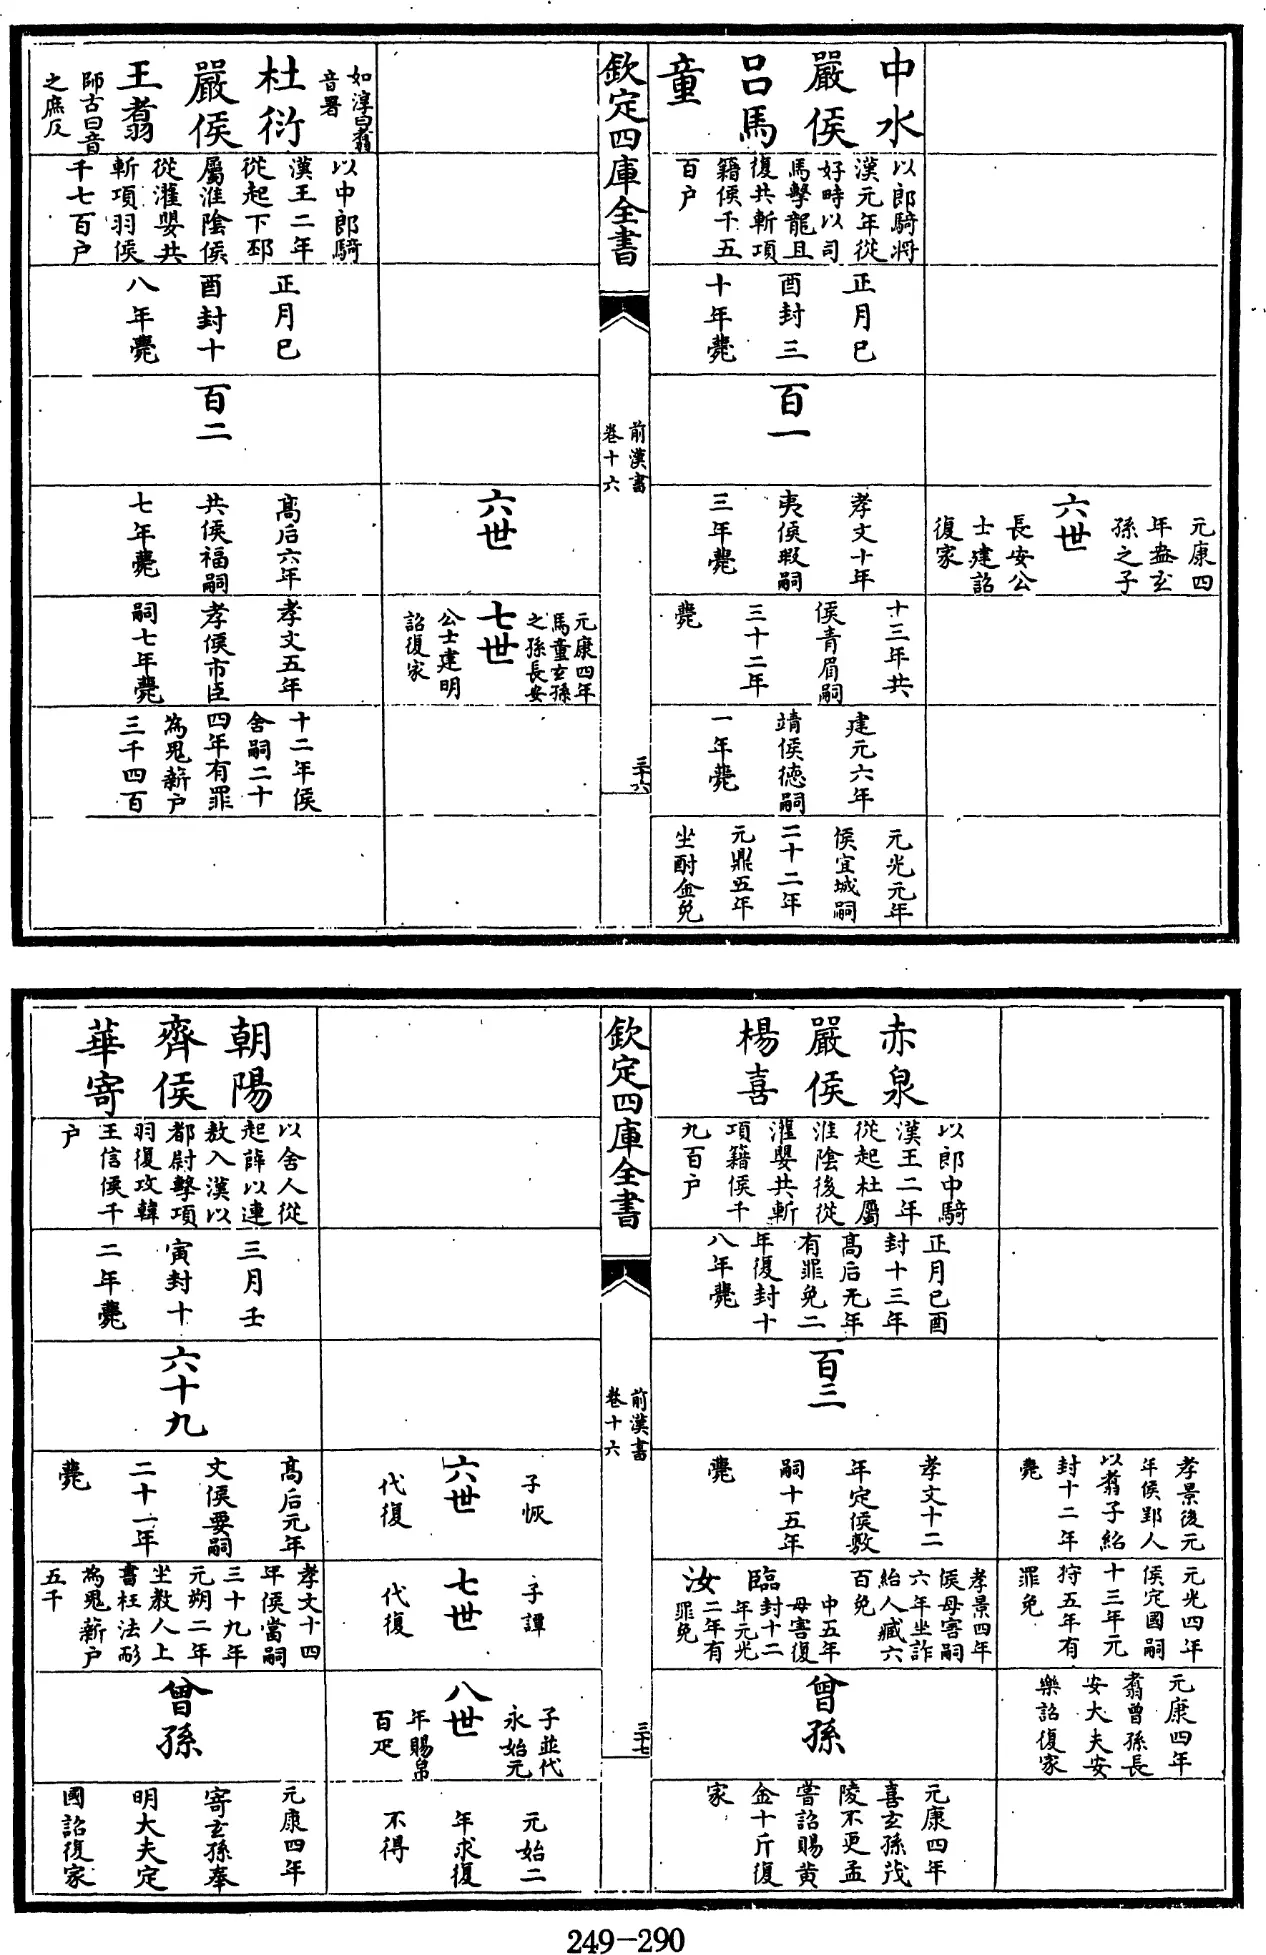 元康四
年盎玄
孫之子
六世
長安公
士建詔
復家
中水
嚴侯
呂馬
童
以郎騎將
漢元年從
好畤以司
馬擊龍且
復共斬項
籍侯千五
百户
正月已
酉封三
十年薨
百一
孝文十年
夷侯瑕嗣
三年薨
十三年共
侯青眉嗣
三十二年
薨
建元六年
靖侯德嗣
一年薨
元光元年
侯宜城嗣
二十二年
元鼎五年
坐酎金免
欽定四庫全書
前漢書
卷十六
三十六
六世
元康四年
馬童玄孫
之孫長安
七世
公士建明
詔復家
如淳曰翥
音署
杜衍
嚴侯
王翥
師古曰音
之庶反
以中郎騎
漢王二年
從起下邳
屬淮陰侯
從灌嬰共
斬項羽侯
千七百户
正月已
酉封十
八年薨
百二
高后六年
共侯福嗣
七年薨
孝文五年
孝侯市臣
嗣七年薨
十二年侯
舍嗣二十
四年有罪
為鬼薪户
三千四百
孝景後元
年侯郢人
以翥子紹
封十二年
薨
元光四年
侯定國嗣
十三年元
狩五年有
罪免
元康四年
翥曾孫長
安大夫安
樂詔復家
赤泉
嚴侯
楊喜
以郎中騎
漢王二年
從起杜屬
淮陰後從
灌嬰共斬
項籍侯千
九百户
正月已酉
封十三年
高后元年
有罪免二
年復封十
八年薨
百三
孝文十二
年定侯敷
嗣十五年
薨
孝景四年
侯毋害嗣
六年坐詐
紿人臧六
百免
中五年
毋害復
臨
封十二
年元光
汝
二年有
罪免
曾孫
元康四年
喜玄孫茂
陵不更孟
嘗詔賜黄
金十斤復
家
欽定四庫全書
前漢書
卷十六
三十七
子恢
六世
代復
子譚
七世
代復
子並代
永始元
八世
年賜帛
百疋
元始二
年求復
不得
朝陽
齊侯
華寄
以舍人從
起薛以連
敖入漢以
都尉擊項
羽復攻韓
王信侯千
户
三月壬
寅封十
二年薨
六十九
高后元年
文侯要嗣
二十一年
薨
孝文十四
年侯當嗣
三十九年
元朔二年
坐教人上
書枉法耏
為鬼薪户
五千
曾孫
元康四年
寄玄孫奉
明大夫定
國詔復家
249-290